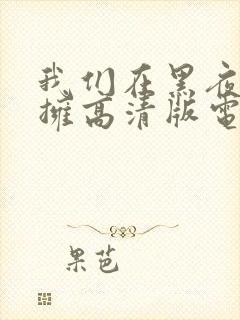 我们在黑夜
擁高清版電
果芭